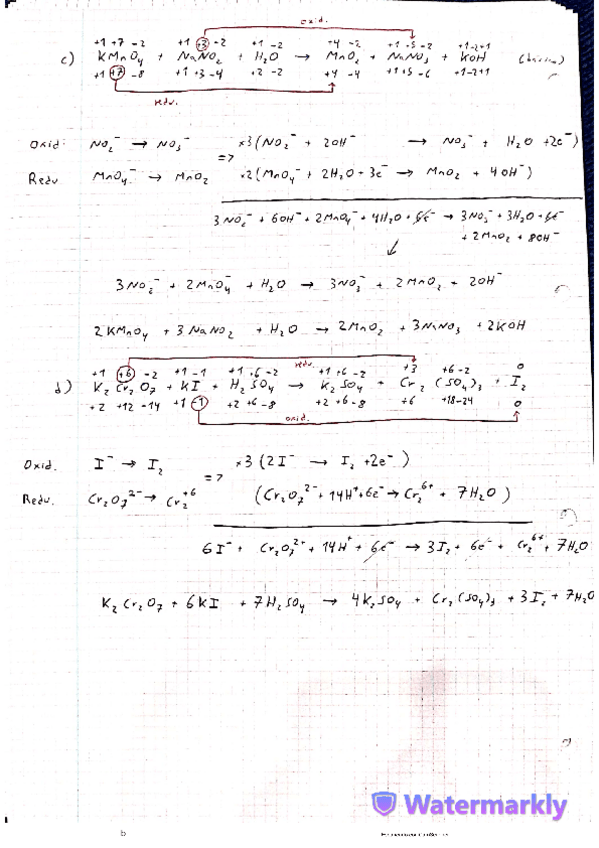 oxid.
+1 +7 -2 +1 +3 -2 +1 -2 +4 -2 +1 +5 -2 +1 -2 +1
c) KMnO₄ + NaNO₂ + H₂O → MnO₂ + NaNO₃ + KOH
+1 +7 -8 +1 +3 -4 +2 -2 +4 -4 +1 +5 -6 +1 -2 +1
redu.
Oxid: NO₂⁻ → NO₃⁻ => ×3 (NO₂⁻ + 2OH⁻ → NO₃⁻ + H₂O + 2e⁻)
Redu MnO₄⁻ → MnO₂ ×2 (MnO₄⁻ + 2H₂O + 3e⁻ → MnO₂ + 4OH⁻)
3NO₂⁻ + 6OH⁻ + 2MnO₄⁻ + 4H₂O + 6e⁻ → 3NO₃⁻ + 3H₂O + 6e⁻
+ 2MnO₂ + 8OH⁻
3NO₂⁻ + 2MnO₄⁻ + H₂O → 3NO₃⁻ + 2MnO₂ + 2OH⁻
2KMnO₄ + 3NaNO₂ + H₂O → 2MnO₂ + 3NaNO₃ + 2KOH
redu.
+1 +6 -2 +1 -1 +1 +6 -2 +1 +6 -2 +3 +6 -2 0
d) K₂Cr₂O₇ + KI + H₂SO₄ → K₂SO₄ + Cr₂(SO₄)₃ + I₂
+2 +12 -14 +1 -1 +2 +6 -8 +2 +6 -8 +6 +18 -24 0
oxid.
Oxid. I⁻ → I₂ => ×3 (2I⁻ → I₂ + 2e⁻)
Redu. Cr₂O₇²⁻ → Cr₂⁺⁶ (Cr₂O₇²⁻ + 14H⁺ + 6e⁻ → Cr₂⁶⁺ + 7H₂O)
6I⁻ + Cr₂O₇²⁺ + 14H⁺ + 6e⁻ → 3I₂ + 6e⁻ + Cr₂⁶⁺ + 7H₂O
K₂Cr₂O₇ + 6KI + 7H₂SO₄ → 4K₂SO₄ + Cr₂(SO₄)₃ + 3I₂ + 7H₂O
Watermarkly